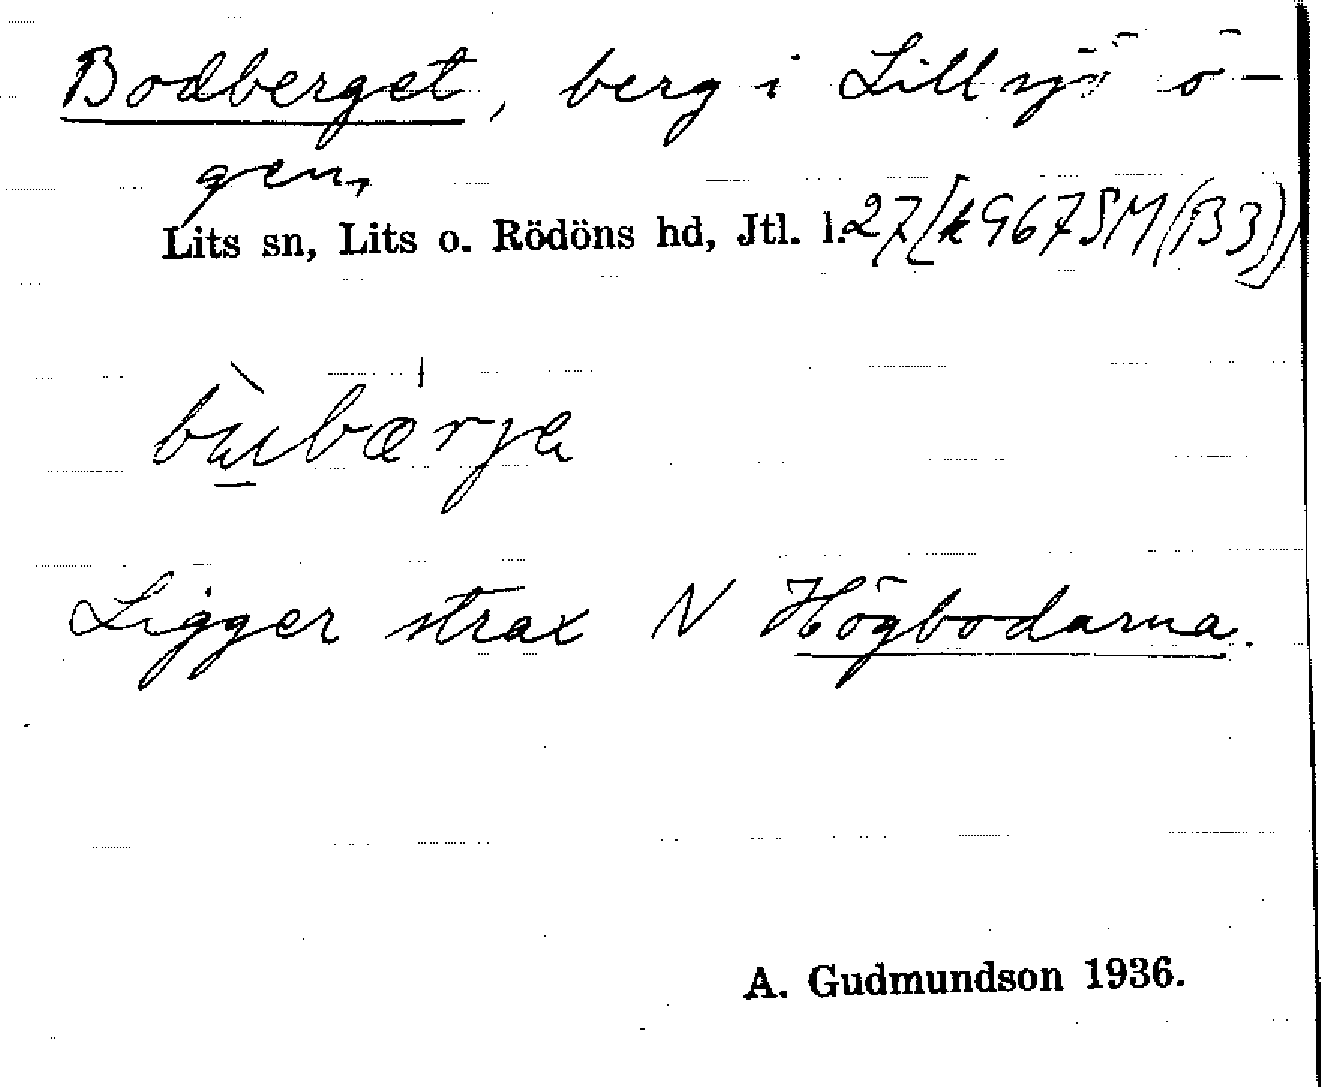 Bodberget, berg i Lillsjö ö-
gen,
Lits sn, Lits o. Rödöns hd, Jtl. l. 27/[k967SM(B3)]
bùbærja
Ligger strax N Högbodarna.
A. Gudmundson 1936.